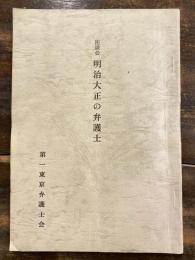 座談会 明治大正の弁護士
第一東京弁護士会